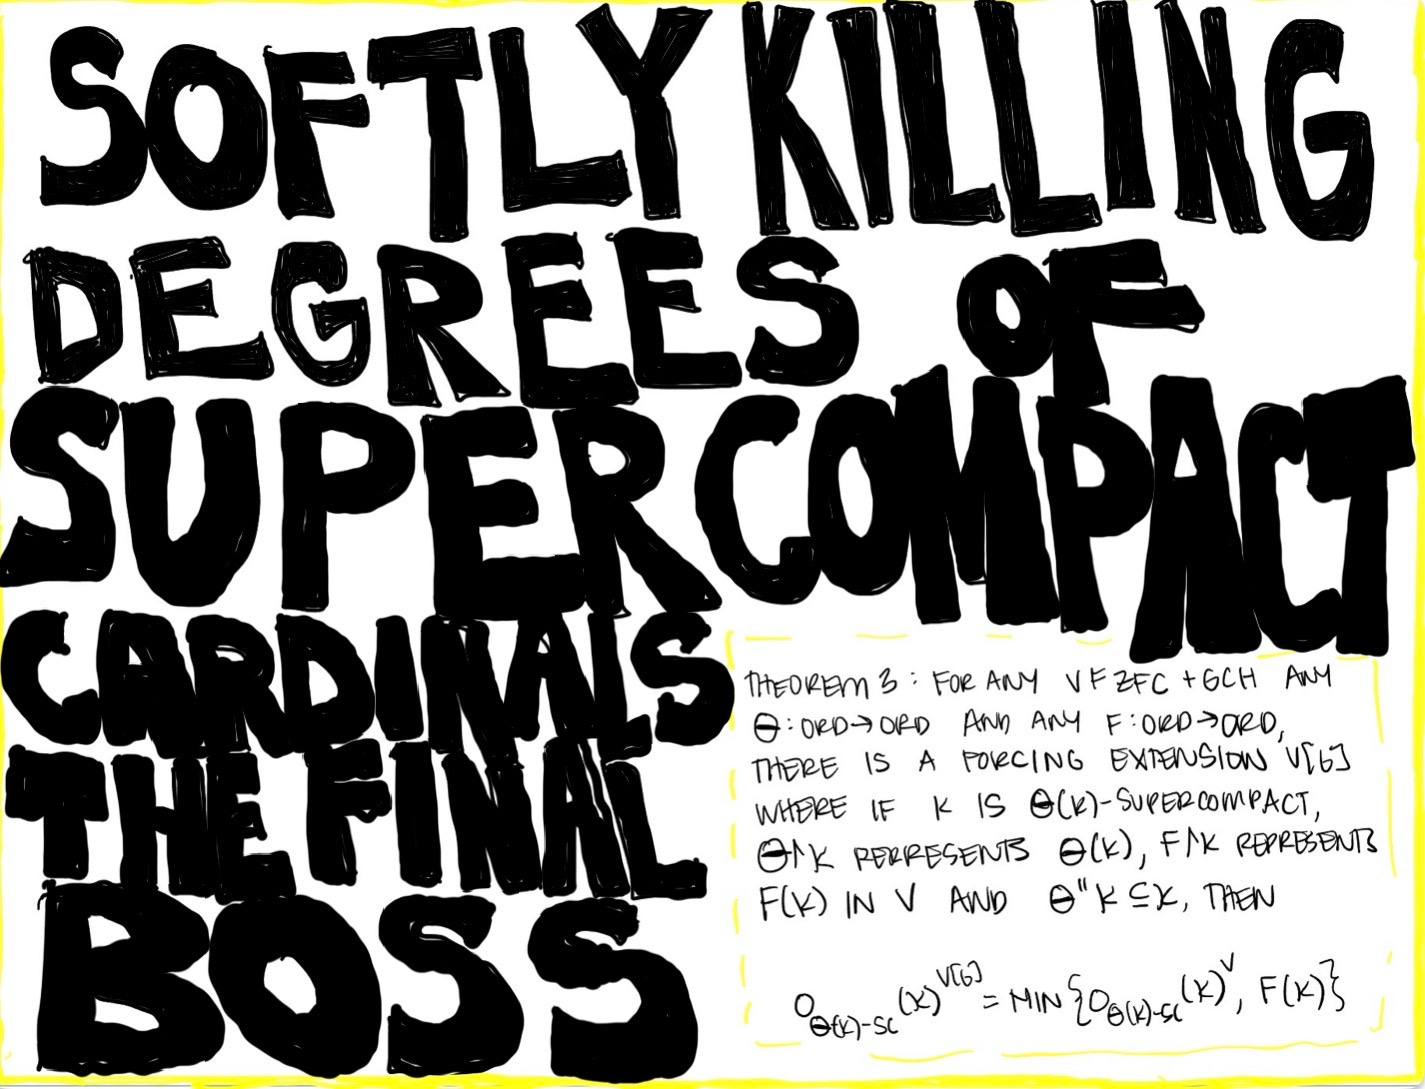 SOFTLY KILLING
DEGREES OF
SUPERCOMPACT
CARDINALS
THE FINAL
BOSS
THEOREM 3: FOR ANY V⊨ZFC+GCH ANY
Θ:ORD→ORD AND ANY F:ORD→ORD,
THERE IS A FORCING EXTENSION V[G]
WHERE IF K IS Θ(K)-SUPERCOMPACT,
Θ↾K REPRESENTS Θ(K), F↾K REPRESENTS
F(K) IN V AND Θ"K⊆K, THEN
O_{Θ(K)-SC}(K)^{V[G]} = MIN{O_{Θ(K)-SC}(K)^V, F(K)}